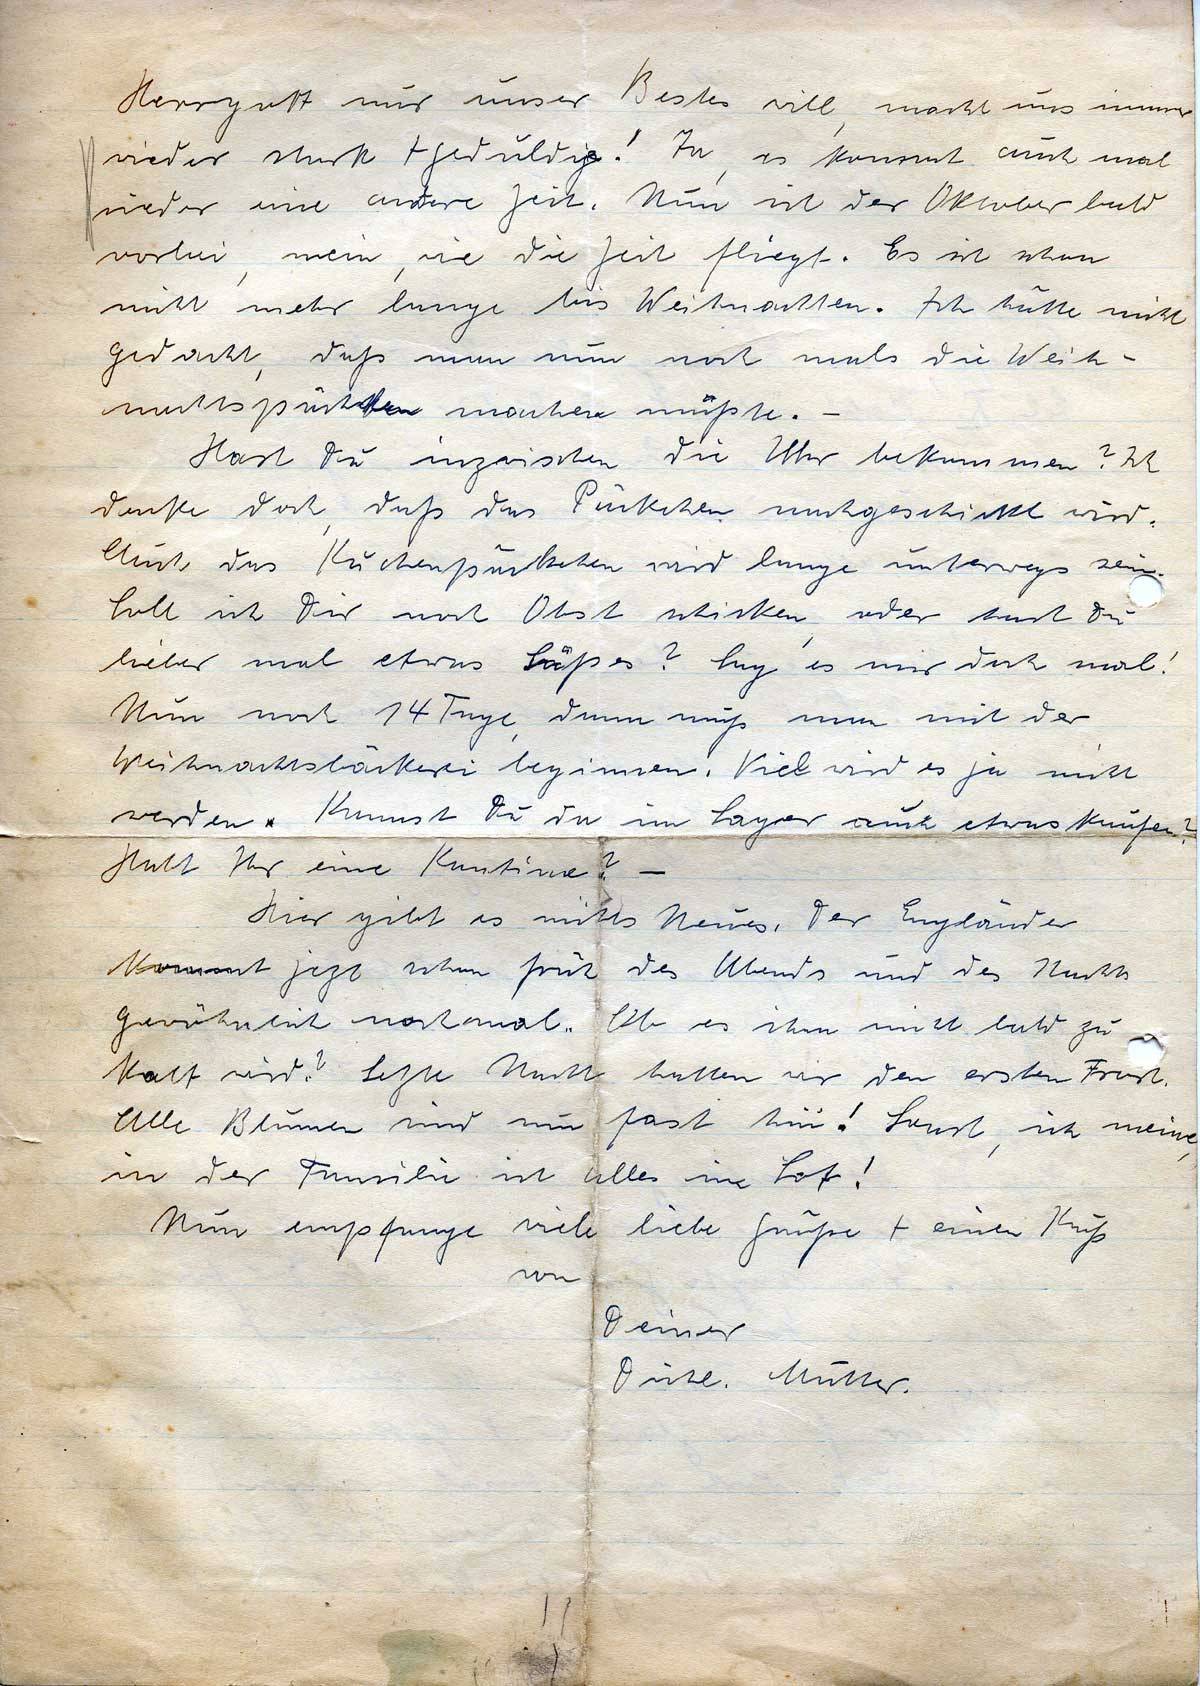 Herrgott nur unser Bestes will, macht uns immer
wieder stark + geduldig! Ja, es kommt auch mal
wieder eine andere Zeit. Nun ist der Oktober bald
vorbei, mein, wie die Zeit fliegt. Es ist schon
nicht mehr lange bis Weihnachten. Ich hätte nicht
gedacht, daß man nun noch mals die Weih-
nachtspäckchen machen müßte. –
Hast Du inzwischen die Uhr bekommen? Ich
denke doch, daß das Päckchen nachgeschickt wird.
Auch das Kuchenpäckchen wird lange unterwegs sein.
Soll ich Dir noch Obst schicken, oder hast Du
lieber mal etwas Süßes? Sag' es mir doch mal!
Nun noch 14 Tage, dann muß man mit der
Weihnachtsbäckerei beginnen. Viel wird es ja nicht
werden. Kannst Du da im Lager auch etwas kaufen?
Habt Ihr eine Kantine? –
Hier gibt es nichts Neues. Der Engländer
kommt jetzt schon früh des Abends und des Nachts
gewöhnlich nochmal. Ob es ihm nicht bald zu
kalt wird? Letzte Nacht hatten wir den ersten Frost.
Alle Blumen sind nun fast hin! Sonst, ich meine,
in der Familie ist alles im Lot!
Nun empfange viele liebe Grüße + einen Kuß
von
Deiner
Mutter.